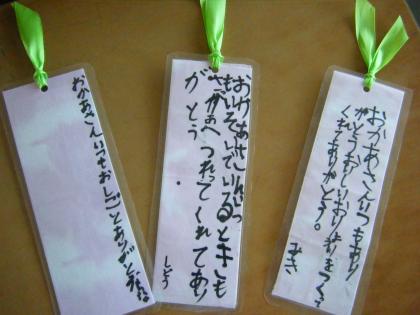 おかあさんいつもおしごとありがとうね
おかあさんいつ
もいそいでいるときも
さっかあへつれってくれてあり
がとう。
しどう
おかあさんいつもあり
がとうおいしいおりょうりをつくって
くれてありがとう。